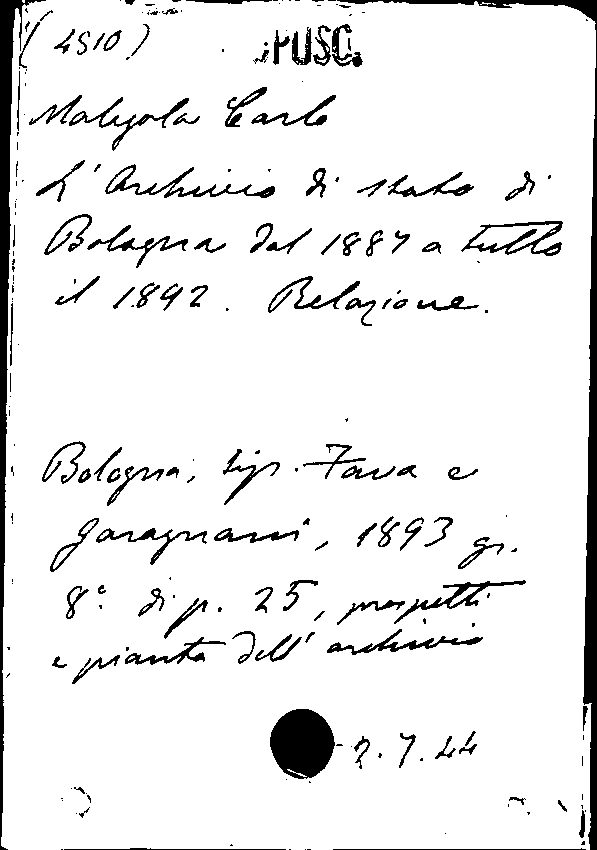 (4510)
OPUSC.
Malagola Carlo
L'Archivio di Stato di
Bologna dal 1887 a tutto
il 1892. Relazione.
Bologna, tip. Fava e
Garagnani, 1893 gr.
8°. di p. 25, prospetti
e pianta dell'archivio
2.7.44